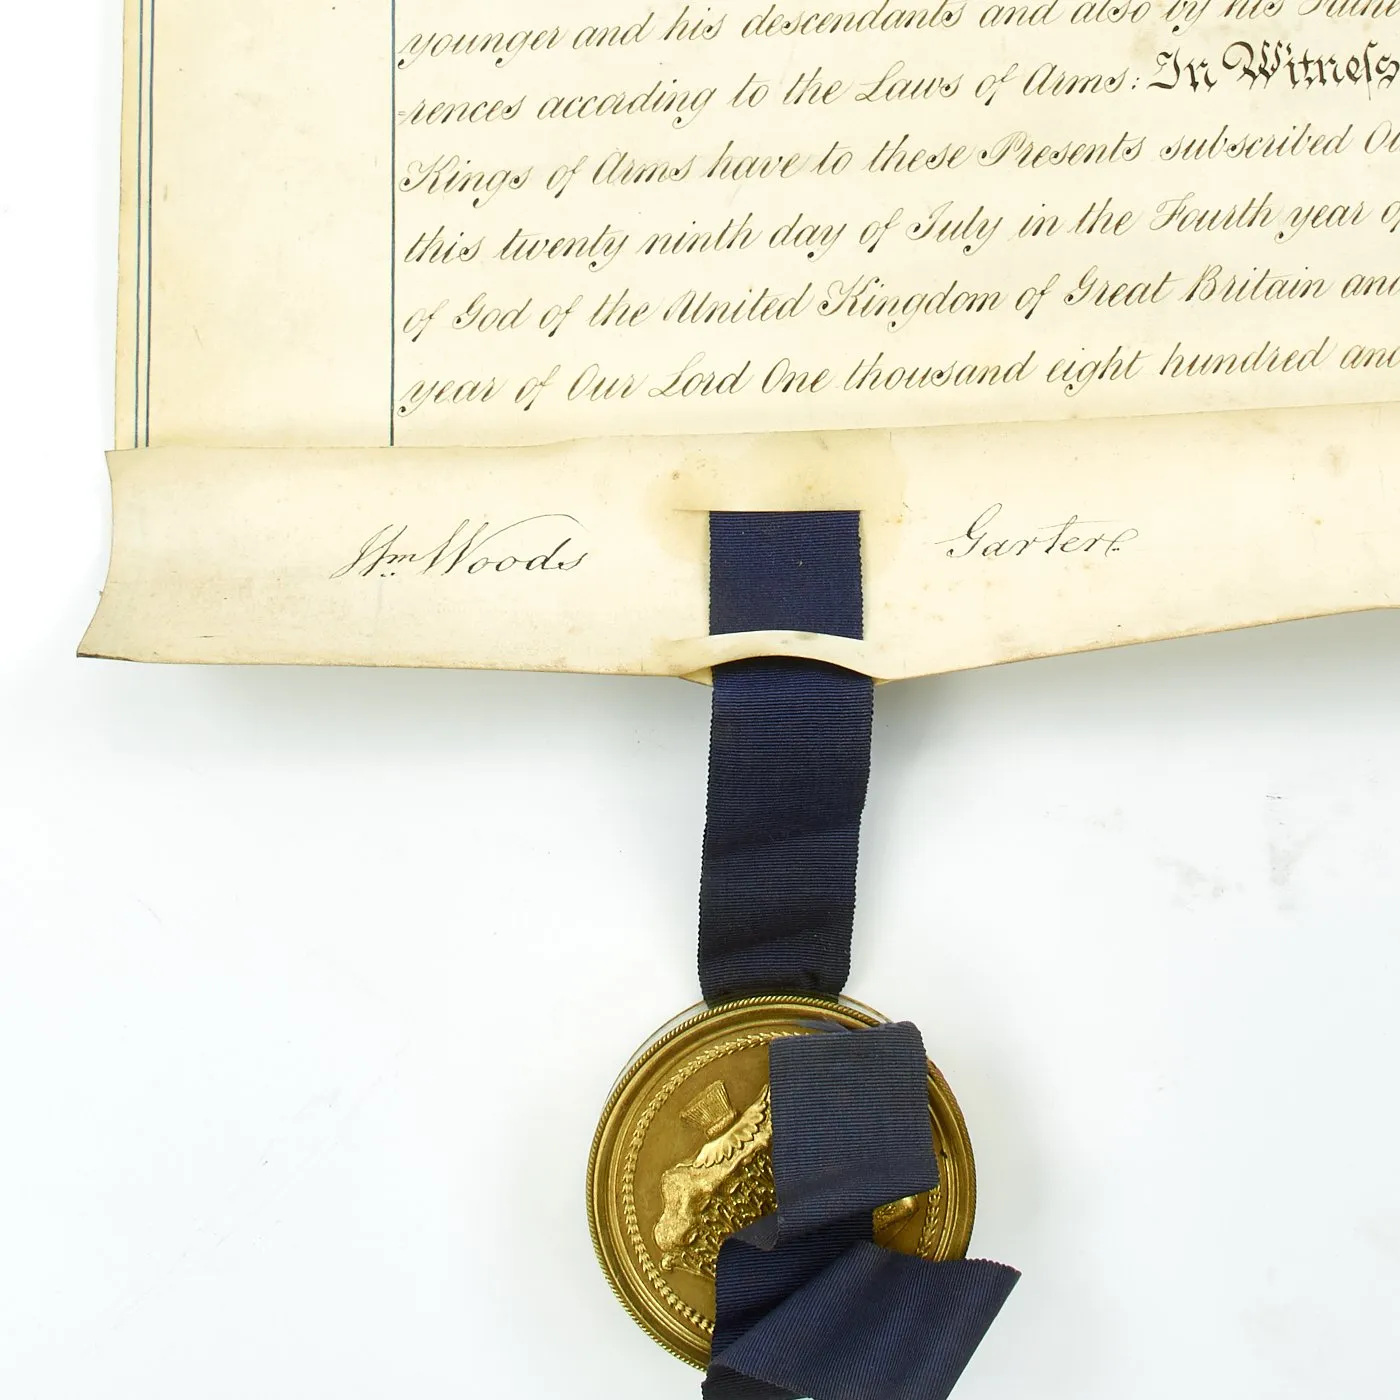 younger and his descendants and also by his Father
-rences according to the Laws of Arms: In Witness
Kings of Arms have to these Presents subscribed Ou
this twenty ninth day of July in the Fourth year of
of God of the United Kingdom of Great Britain and
year of Our Lord One thousand eight hundred and
Wm Woods Garter.